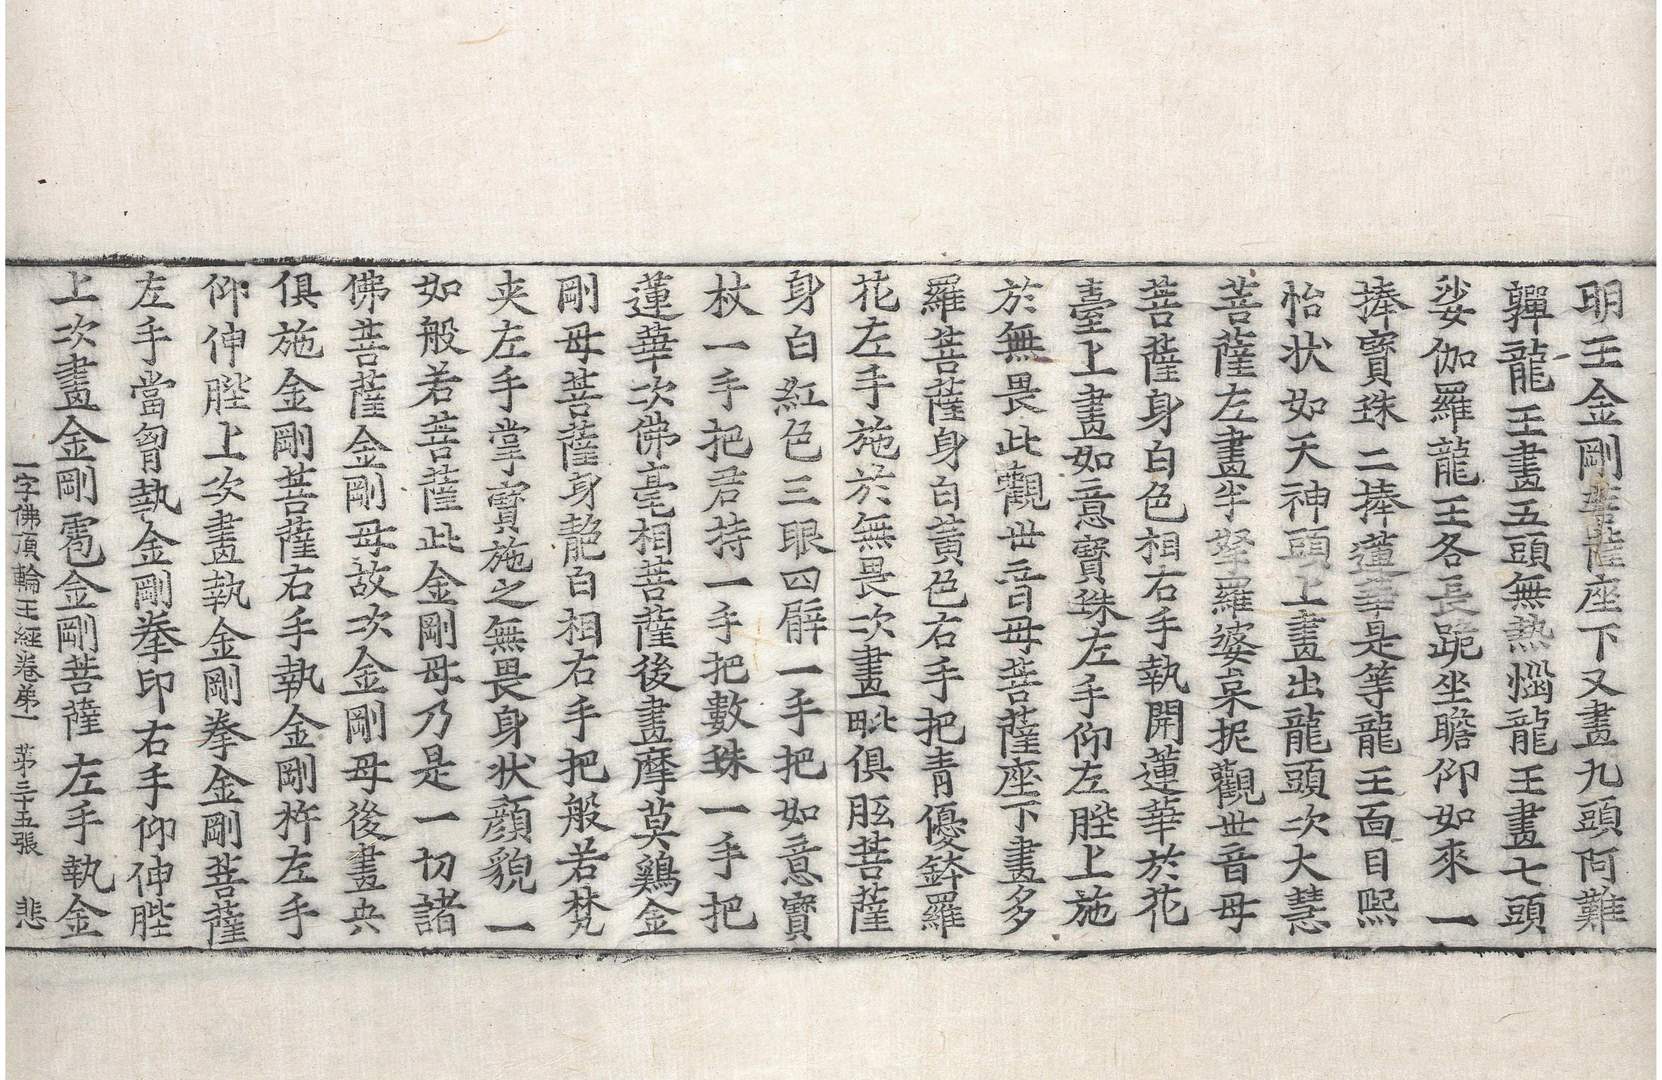 明王金剛菩薩座下又畫九頭阿難
嚲龍王畫五頭無熱惱龍王畫七頭
娑伽羅龍王各長跪坐瞻仰如來一
捧寶珠二捧蓮華是等龍王面目熙
怡状如天神頭上畫出龍頭次大慧
菩薩左畫半拏羅婆枲抳觀世音母
菩薩身白色相右手執開蓮華於花
臺上畫如意寶珠左手仰左䏶上施
於無畏此觀世音母菩薩座下畫多
羅菩薩身白黃色右手把青優鉢羅
花左手施於無畏次畫毗俱胝菩薩
身白紅色三眼四臂一手把如意寶
杖一手把君持一手把數珠一手把
蓮華次佛毫相菩薩後畫摩莫鷄金
剛母菩薩身艶白相右手把般若梵
夾左手掌寶施之無畏身状顔貌一
如般若菩薩此金剛母乃是一切諸
佛菩薩金剛母故次金剛母後畫央
俱施金剛菩薩右手執金剛杵左手
仰伸䏶上次畫執金剛拳金剛菩薩
左手當胷執金剛拳印右手仰伸䏶
上次畫金剛雹金剛菩薩左手執金
一字佛頂輪王經卷第一 第三十五張 悲